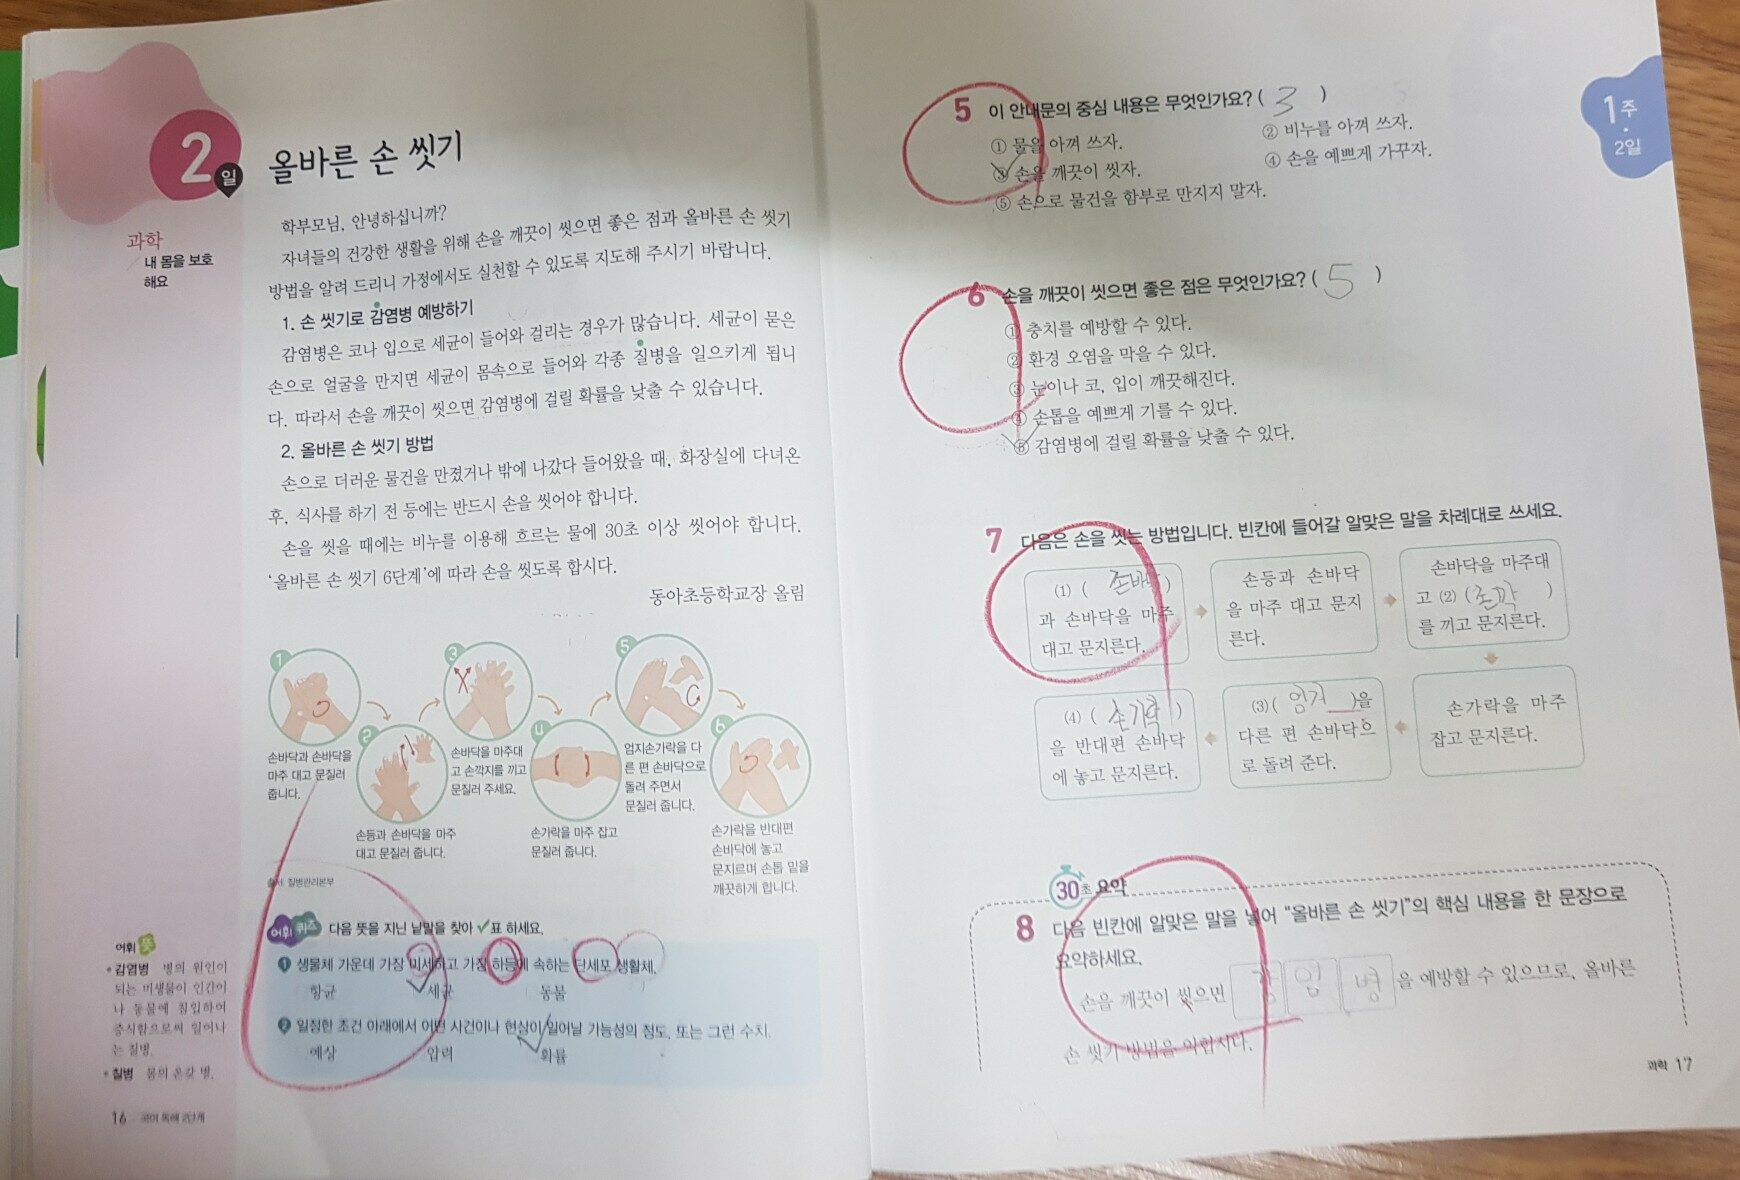 2일
올바른 손 씻기
과학
내 몸을 보호
해요
학부모님, 안녕하십니까?
자녀들의 건강한 생활을 위해 손을 깨끗이 씻으면 좋은 점과 올바른 손 씻기
방법을 알려 드리니 가정에서도 실천할 수 있도록 지도해 주시기 바랍니다.
1. 손 씻기로 감염병 예방하기
감염병은 코나 입으로 세균이 들어와 걸리는 경우가 많습니다. 세균이 묻은
손으로 얼굴을 만지면 세균이 몸속으로 들어와 각종 질병을 일으키게 됩니
다. 따라서 손을 깨끗이 씻으면 감염병에 걸릴 확률을 낮출 수 있습니다.
2. 올바른 손 씻기 방법
손으로 더러운 물건을 만졌거나 밖에 나갔다 들어왔을 때, 화장실에 다녀온
후, 식사를 하기 전 등에는 반드시 손을 씻어야 합니다.
손을 씻을 때에는 비누를 이용해 흐르는 물에 30초 이상 씻어야 합니다.
‘올바른 손 씻기 6단계’에 따라 손을 씻도록 합시다.
동아초등학교장 올림
1
손바닥과 손바닥을
마주 대고 문질러
줍니다.
2
손등과 손바닥을 마주
대고 문질러 줍니다.
3
손바닥을 마주대
고 손깍지를 끼고
문질러 주세요.
4
손가락을 마주 잡고
문질러 줍니다.
5
엄지손가락을 다
른 편 손바닥으로
돌려 주면서
문질러 줍니다.
6
손가락을 반대편
손바닥에 놓고
문지르며 손톱 밑을
깨끗하게 합니다.
출처 질병관리본부
어휘 퀴즈 다음 뜻을 지닌 낱말을 찾아 ✓표 하세요.
❶ 생물체 가운데 가장 미세하고 가장 하등에 속하는 단세포 생활체.
항균 세균 동물
❷ 일정한 조건 아래에서 어떤 사건이나 현상이 일어날 가능성의 정도. 또는 그런 수치.
예상 압력 확률
어휘 뜻
감염병 병의 원인이
되는 미생물이 인간이
나 동물에 침입하여
증식함으로써 일어나
는 질병.
질병 몸의 온갖 병.
16 국어 독해 2단계
1주
2일
5 이 안내문의 중심 내용은 무엇인가요? ( 3 )
① 물을 아껴 쓰자. ② 비누를 아껴 쓰자.
③ 손을 깨끗이 씻자. ④ 손을 예쁘게 가꾸자.
⑤ 손으로 물건을 함부로 만지지 말자.
6 손을 깨끗이 씻으면 좋은 점은 무엇인가요? ( 5 )
① 충치를 예방할 수 있다.
② 환경 오염을 막을 수 있다.
③ 눈이나 코, 입이 깨끗해진다.
④ 손톱을 예쁘게 기를 수 있다.
⑤ 감염병에 걸릴 확률을 낮출 수 있다.
7 다음은 손을 씻는 방법입니다. 빈칸에 들어갈 알맞은 말을 차례대로 쓰세요.
(1) ( 손바닥 )
과 손바닥을 마주
대고 문지른다.
손등과 손바닥
을 마주 대고 문지
른다.
손바닥을 마주대
고 (2) ( 손깍 )
를 끼고 문지른다.
손가락을 마주
잡고 문지른다.
(3) ( 엄지 )을
다른 편 손바닥으
로 돌려 준다.
(4) ( 손가락 )
을 반대편 손바닥
에 놓고 문지른다.
30초 요약
8 다음 빈칸에 알맞은 말을 넣어 “올바른 손 씻기”의 핵심 내용을 한 문장으로
요약하세요.
손을 깨끗이 씻으면 감염병 을 예방할 수 있으므로, 올바른
손 씻기 방법을 익힙시다.
과학 17